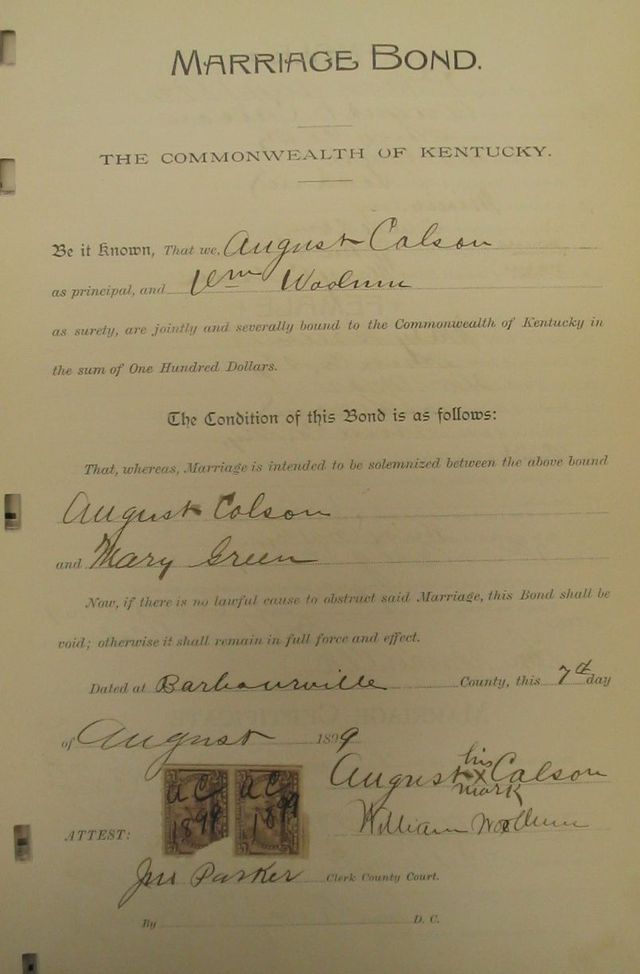 MARRIAGE BOND.
THE COMMONWEALTH OF KENTUCKY.
Be it Known, That we, August Colson
as principal, and Wm Woolum
as surety, are jointly and severally bound to the Commonwealth of Kentucky in
the sum of One Hundred Dollars.
The Condition of this Bond is as follows:
That, whereas, Marriage is intended to be solemnized between the above bound
August Colson
and Mary Green
Now, if there is no lawful cause to obstruct said Marriage, this Bond shall be
void; otherwise it shall remain in full force and effect.
Dated at Barbourville County, this 7th day
of August 1899
his
August X Colson
mark
A C A C
1899 1899
William Woollum
ATTEST:
Jno Parker Clerk County Court.
By D. C.